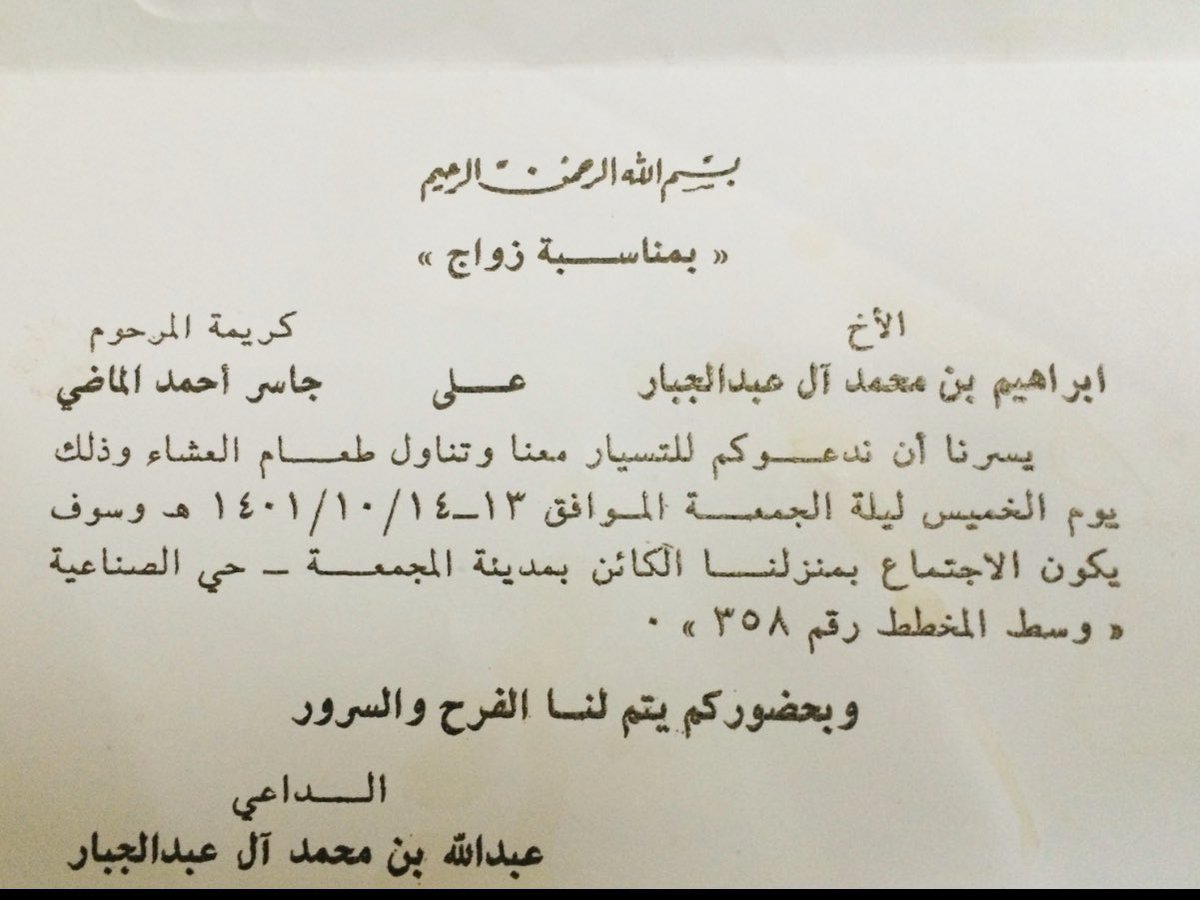 بسم الله الرحمن الرحيم
« بمناسبة زواج »
الأخ كريمة المرحوم
ابراهيم بن محمد آل عبدالجبار على جاسر أحمد الماضي
يسرنا أن ندعوكم للتسيار معنا وتناول طعام العشاء وذلك
يوم الخميس ليلة الجمعة الموافق ١٣ــ١٤/١٠/١٤٠١ هـ وسوف
يكون الاجتماع بمنزلنا الكائن بمدينة المجمعة ــ حي الصناعية
« وسط المخطط رقم ٣٥٨ » ٠
وبحضوركم يتم لنا الفرح والسرور
الداعي
عبدالله بن محمد آل عبدالجبار